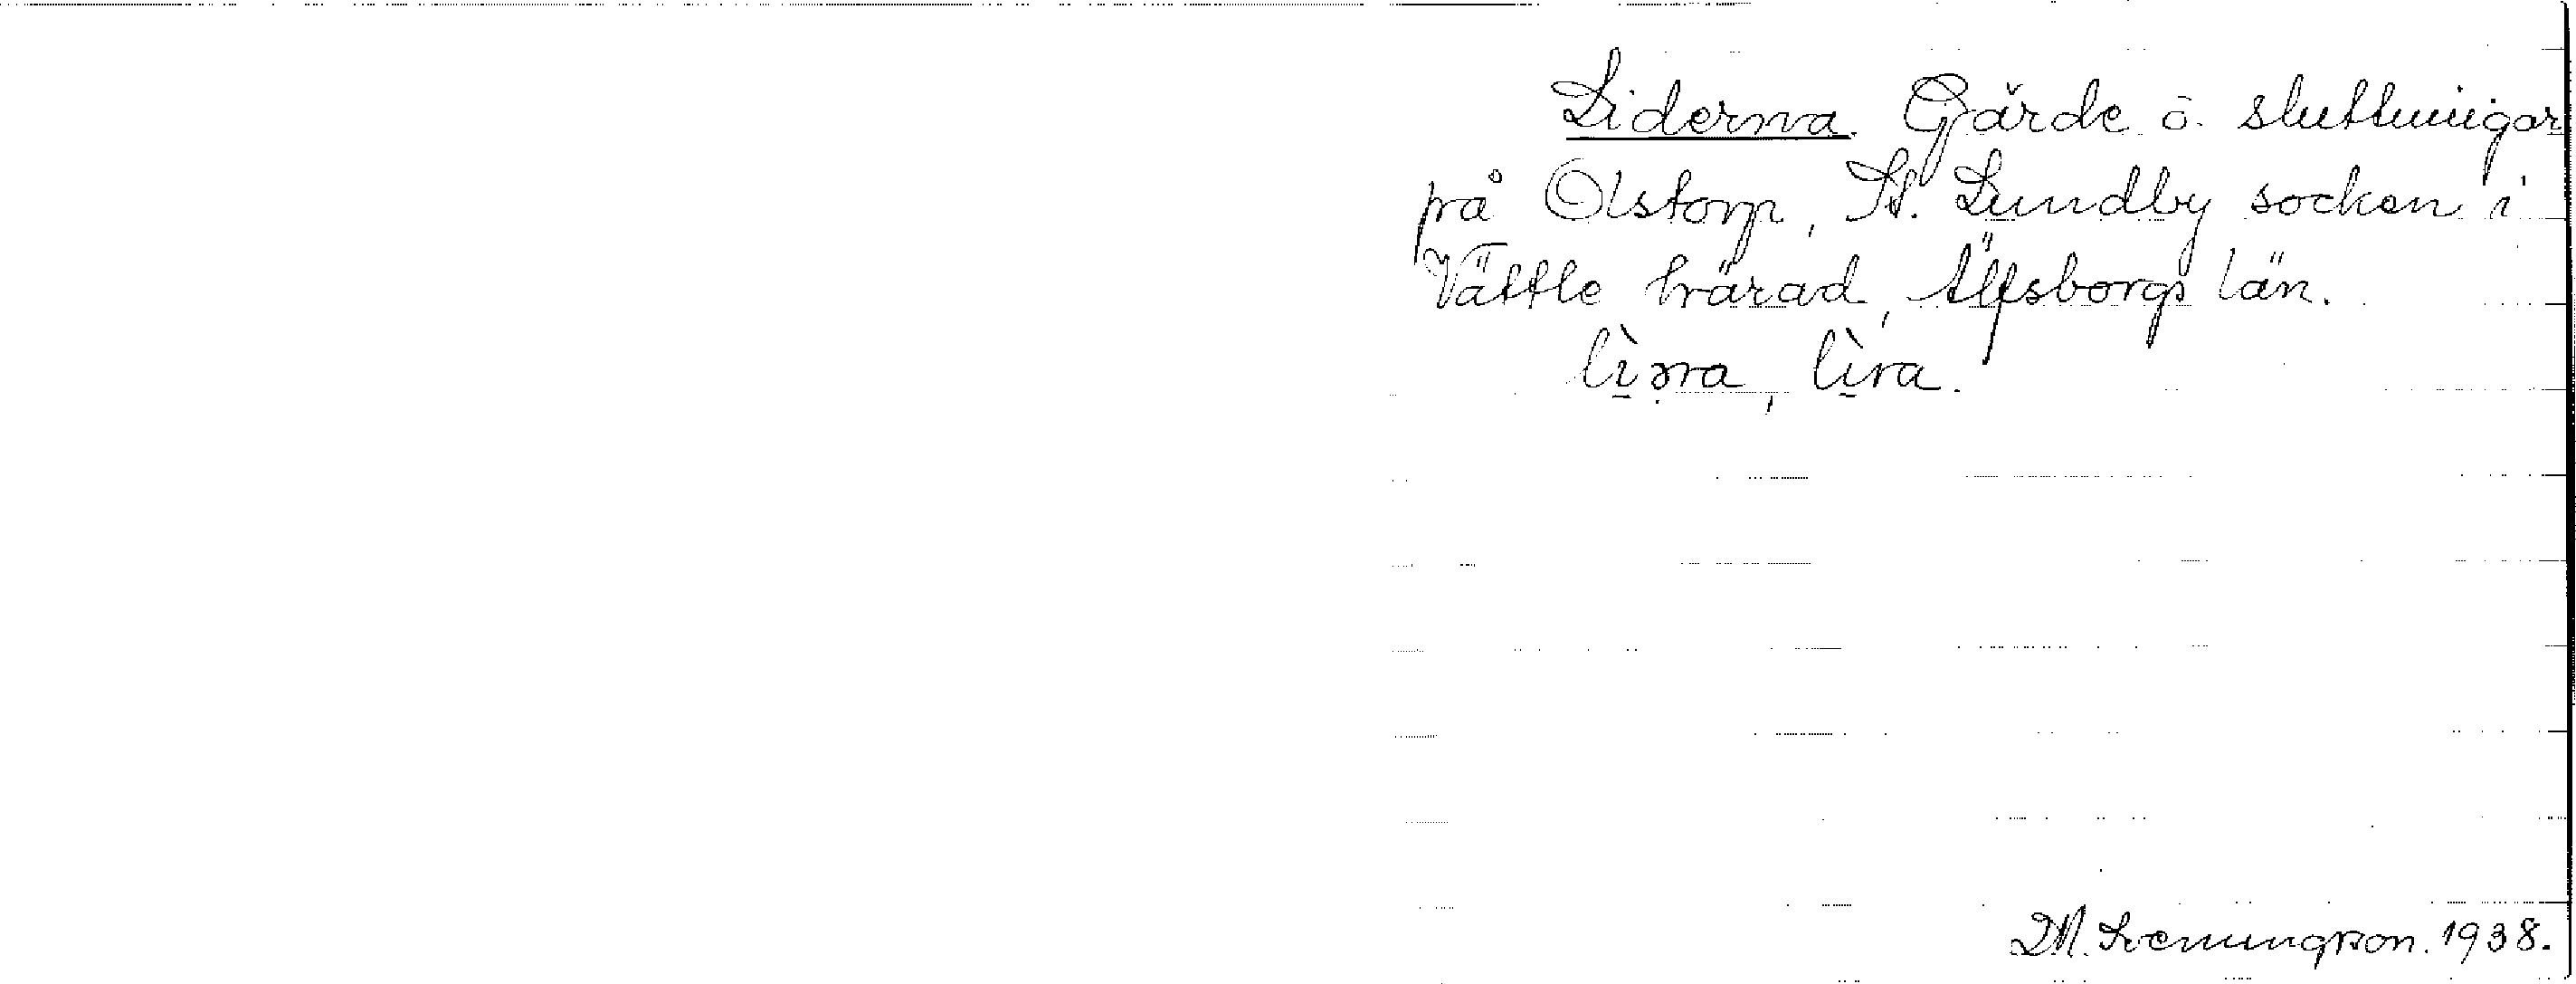 Liderna. Gärde o. sluttningar
på Olstorp, St. Lundby socken i
Vättle härad, Älfsborgs län.
lìərna, lìra.
M. Svenungsson. 1938.